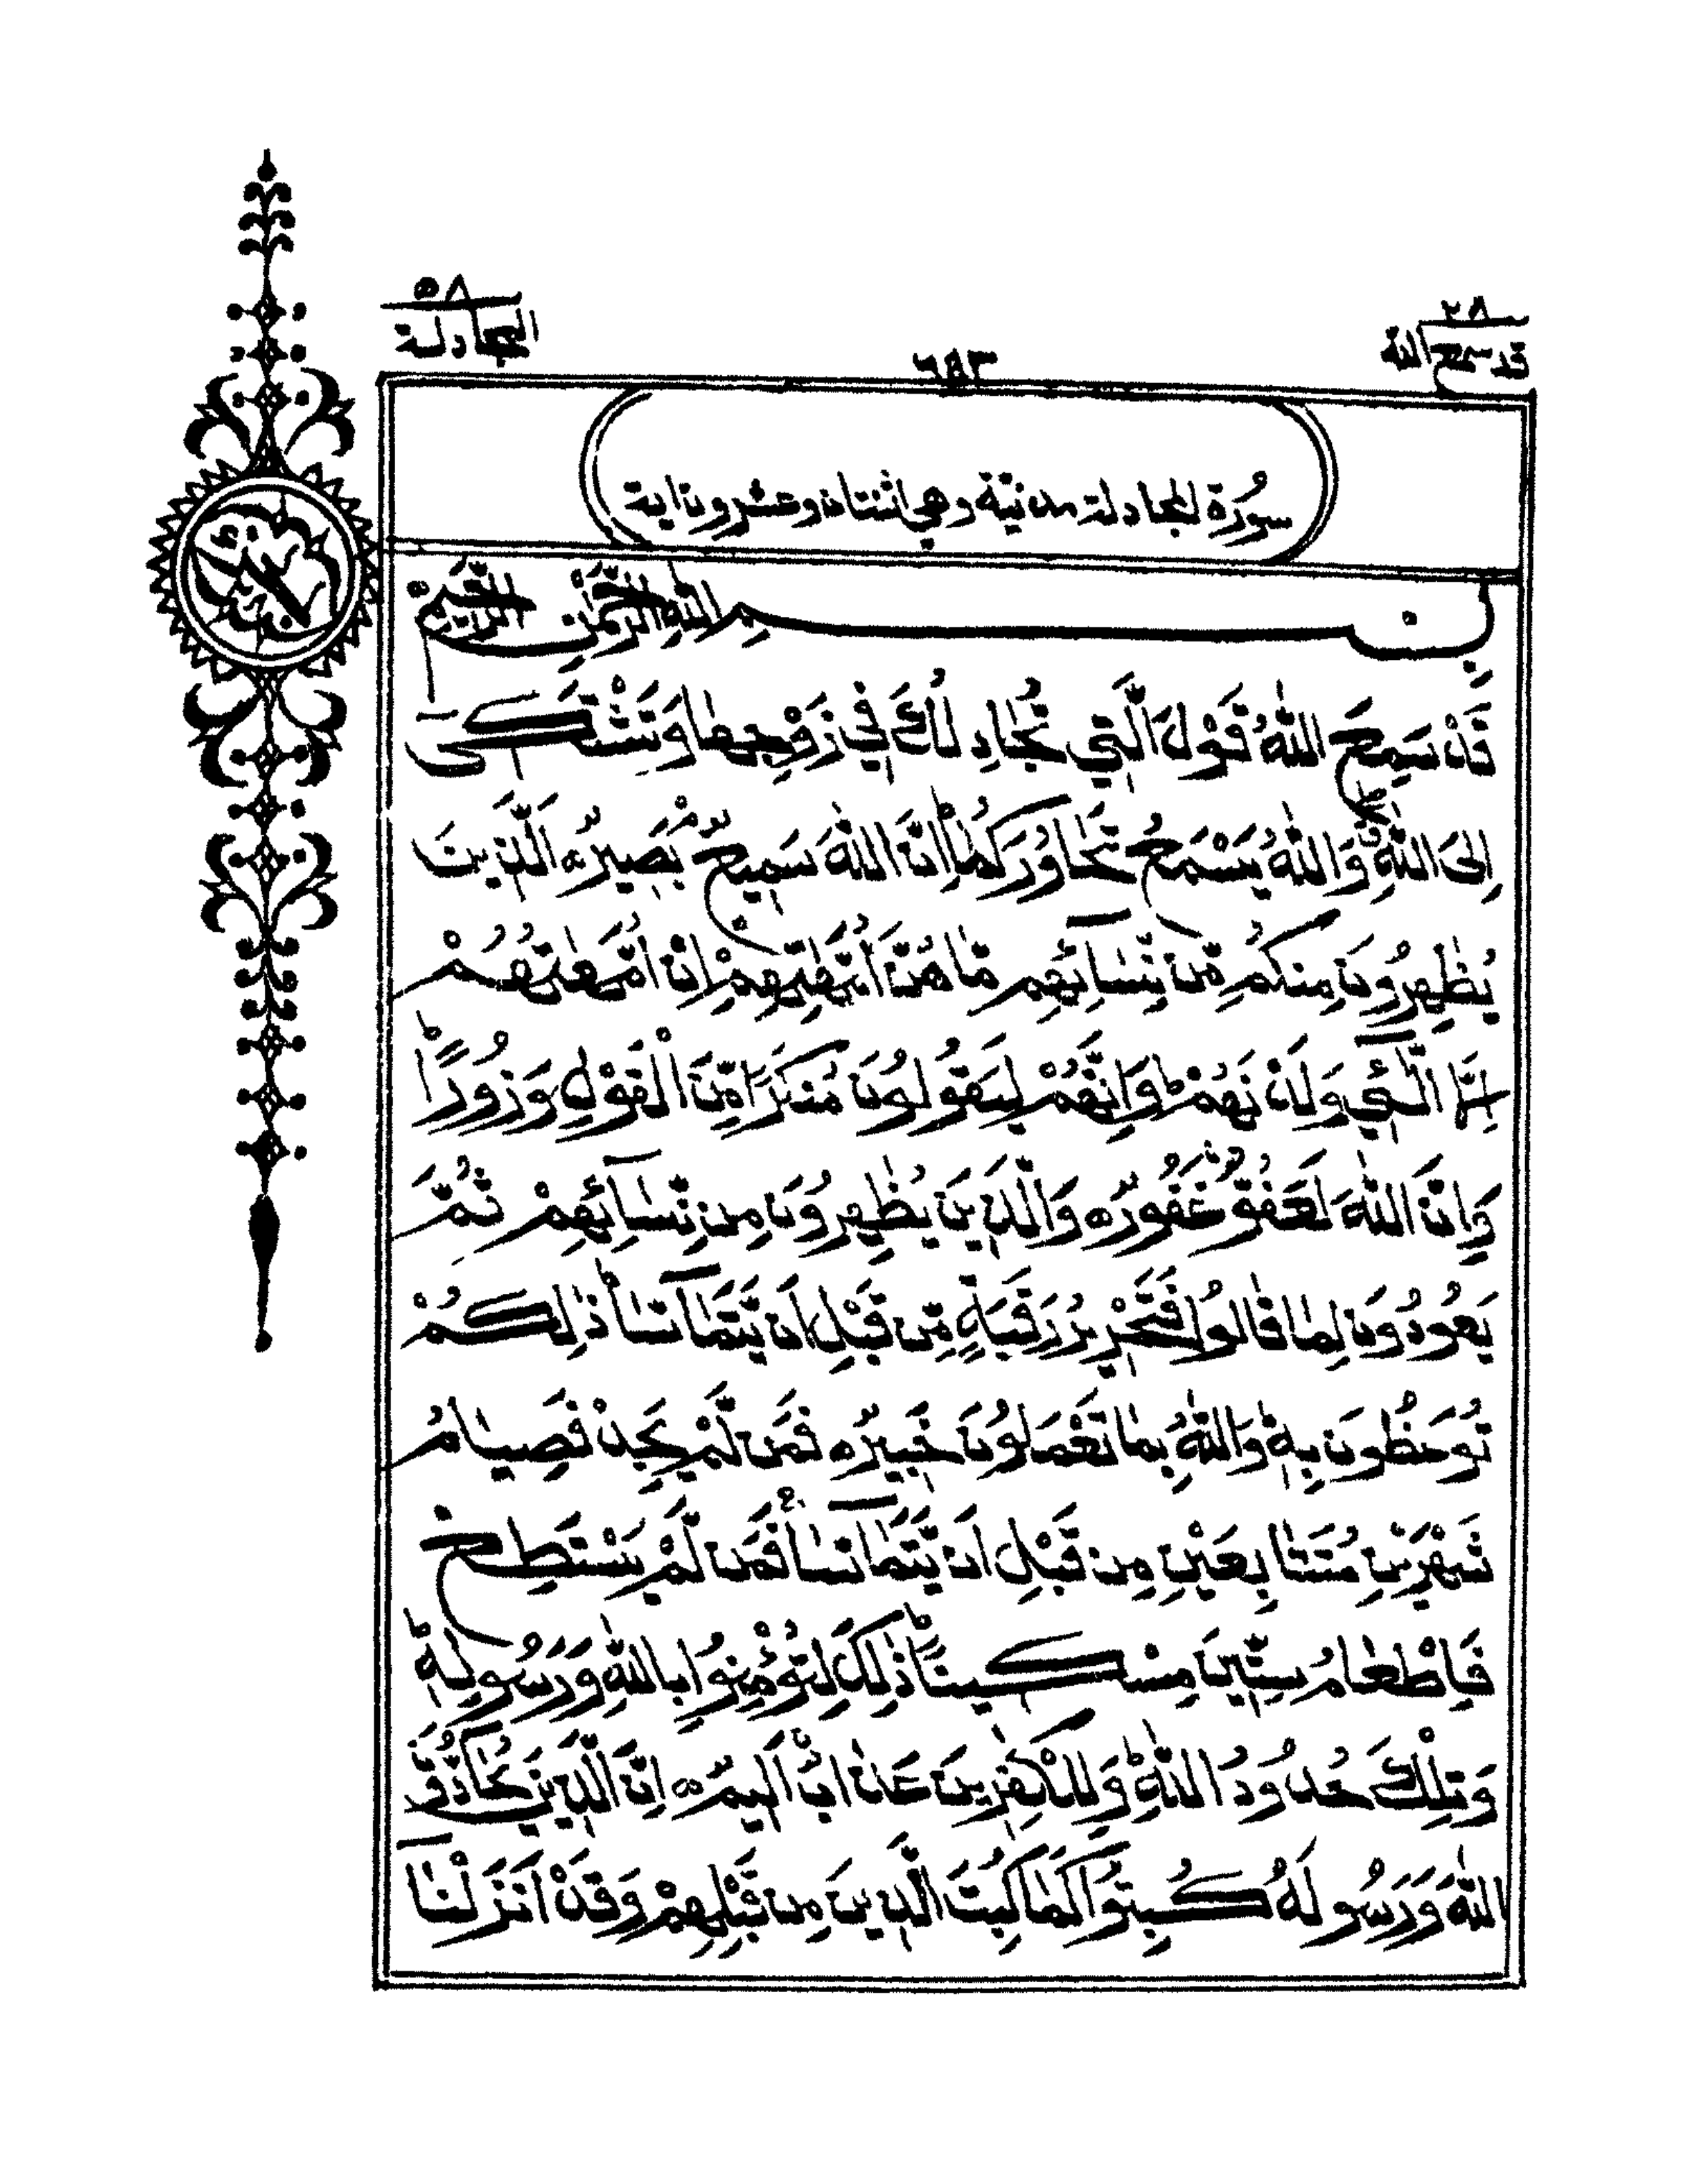 ٢٨
قد سمع الله
٦٨٣
٥٨
المجادلة
سُورَة المجادلة مدنيّة وهي اثنتان وعشرون اية
بِسْمِ اللهِ الرَّحْمٰنِ الرَّحِيْمِ
قَدْ سَمِعَ اللّٰهُ قَوْلَ الَّتِي تُجَادِلُكَ فِي زَوْجِهَا وَتَشْتَكِى
اِلَى اللّٰهِ وَاللّٰهُ يَسْمَعُ تَحَاوُرَكُمَا اِنَّ اللّٰهَ سَمِيعٌ بَصِيرٌ ۝ اَلَّذِينَ
يُظٰهِرُونَ مِنكُم مِّن نِّسَآئِهِم مَّا هُنَّ اُمَّهٰتِهِمْ اِنْ اُمَّهٰتُهُمْ
اِلَّا الّٰٓئِي وَلَدْنَهُمْ وَاِنَّهُمْ لَيَقُولُونَ مُنكَرًا مِّنَ الْقَوْلِ وَزُورًا
وَاِنَّ اللّٰهَ لَعَفُوٌّ غَفُورٌ ۝ وَالَّذِينَ يُظٰهِرُونَ مِن نِّسَآئِهِمْ ثُمَّ
يَعُودُونَ لِمَا قَالُوا فَتَحْرِيرُ رَقَبَةٍ مِّن قَبْلِ اَن يَّتَمَآسَّا ذٰلِكُمْ
تُوعَظُونَ بِهٖ وَاللّٰهُ بِمَا تَعْمَلُونَ خَبِيرٌ ۝ فَمَن لَّمْ يَجِدْ فَصِيَامُ
شَهْرَيْنِ مُتَتَابِعَيْنِ مِن قَبْلِ اَن يَّتَمَآسَّا فَمَن لَّمْ يَسْتَطِعْ
فَاِطْعَامُ سِتِّينَ مِسْكِينًا ذٰلِكَ لِتُؤْمِنُوا بِاللّٰهِ وَرَسُولِهٖ
وَتِلْكَ حُدُودُ اللّٰهِ وَلِلْكٰفِرِينَ عَذَابٌ اَلِيمٌ ۝ اِنَّ الَّذِينَ يُحَآدُّونَ
اللّٰهَ وَرَسُولَهُ كُبِتُوا كَمَا كُبِتَ الَّذِينَ مِن قَبْلِهِمْ وَقَدْ اَنزَلْنَآ